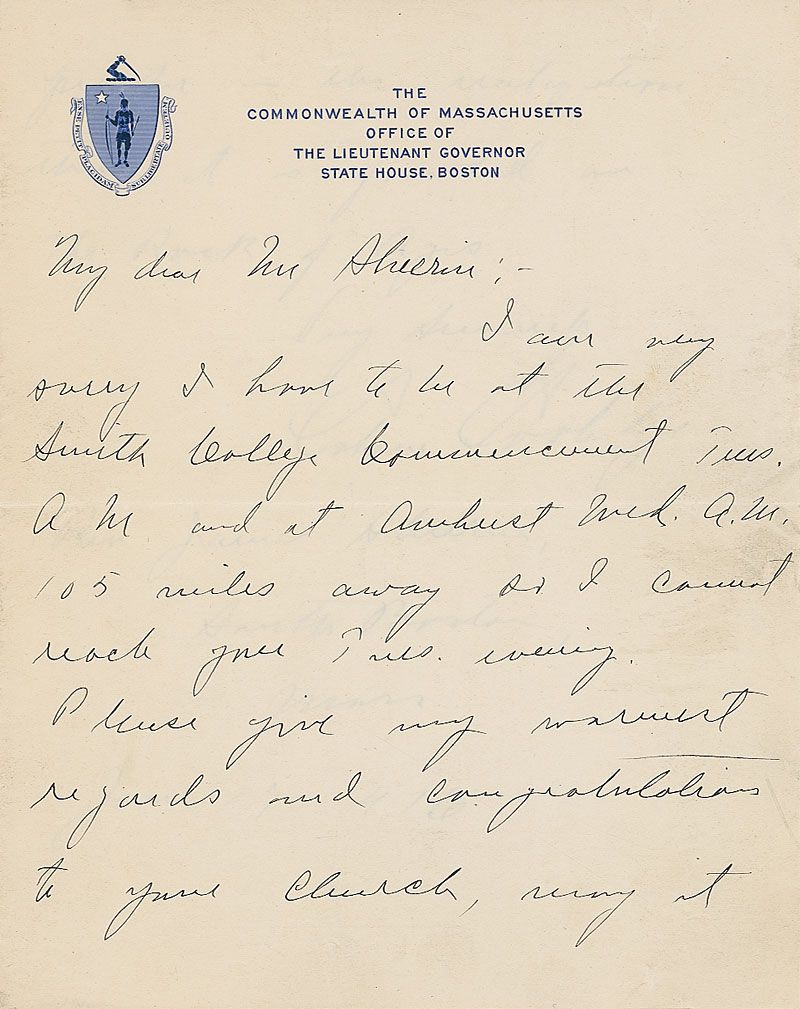 THE
COMMONWEALTH OF MASSACHUSETTS
OFFICE OF
THE LIEUTENANT GOVERNOR
STATE HOUSE, BOSTON
ENSE PETIT PLACIDAM SUB LIBERTATE QUIETEM
My dear Mr Sheerin;-
I am very
sorry I have to be at the
Smith College Commencement Tues.
A M and at Amherst Wed. A.M.
105 miles away so I cannot
reach you Tues. evening.
Please give my warmest
regards and congratulations
to your Church, may it